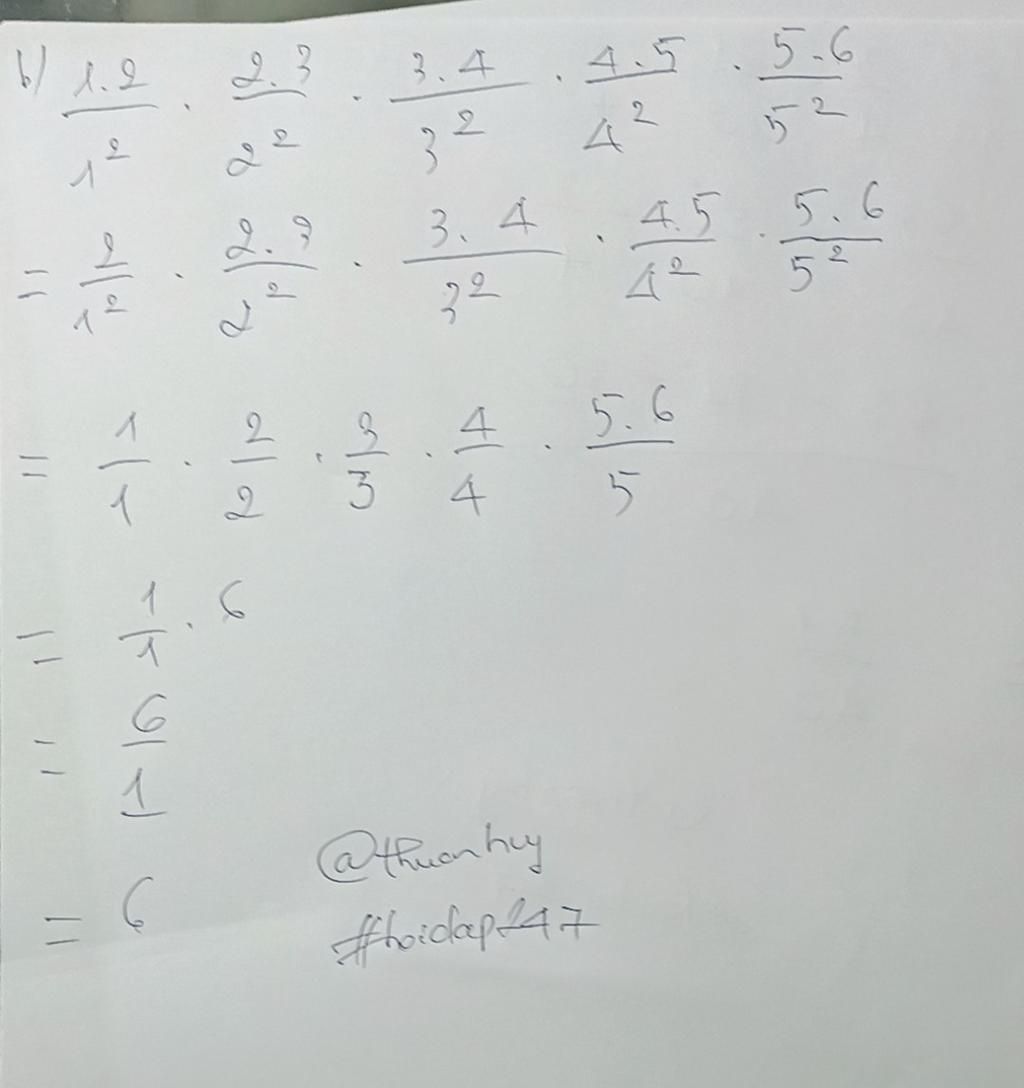 b) 1.2/1² . 2.3/2² . 3.4/3² . 4.5/4² . 5.6/5²
= 2/1² . 2.3/2² . 3.4/3² . 4.5/4² . 5.6/5²
= 1/1 . 2/2 . 3/3 . 4/4 . 5.6/5
= 1/1 . 6
= 6/1
= 6
@thuanhuy
#hoidap247